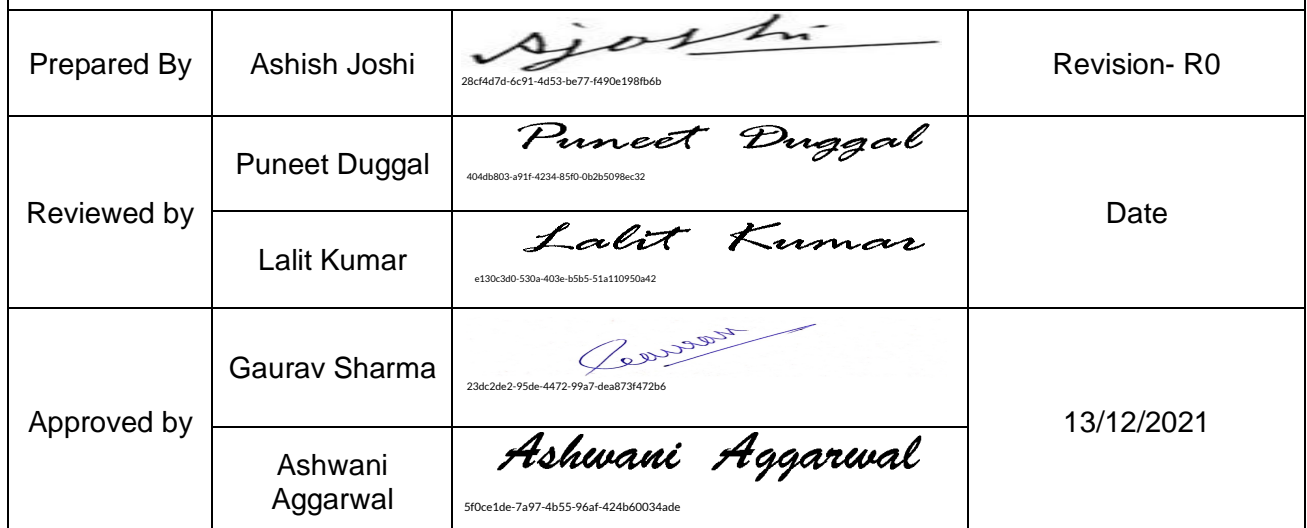 Prepared By
Ashish Joshi
Ajoshi
28cf4d7d-6c91-4d53-be77-f490e198fb6b
Revision- R0
Reviewed by
Puneet Duggal
Puneet Duggal
404db803-a91f-4234-85f0-0b2b5098ec32
Date
Lalit Kumar
Lalit Kumar
e130c3d0-530a-403e-b5b5-51a110950a42
Approved by
Gaurav Sharma
Gaurav
23dc2de2-95de-4472-99a7-dea873f472b6
13/12/2021
Ashwani
Aggarwal
Ashwani Aggarwal
5f0ce1de-7a97-4b55-96af-424b60034ade